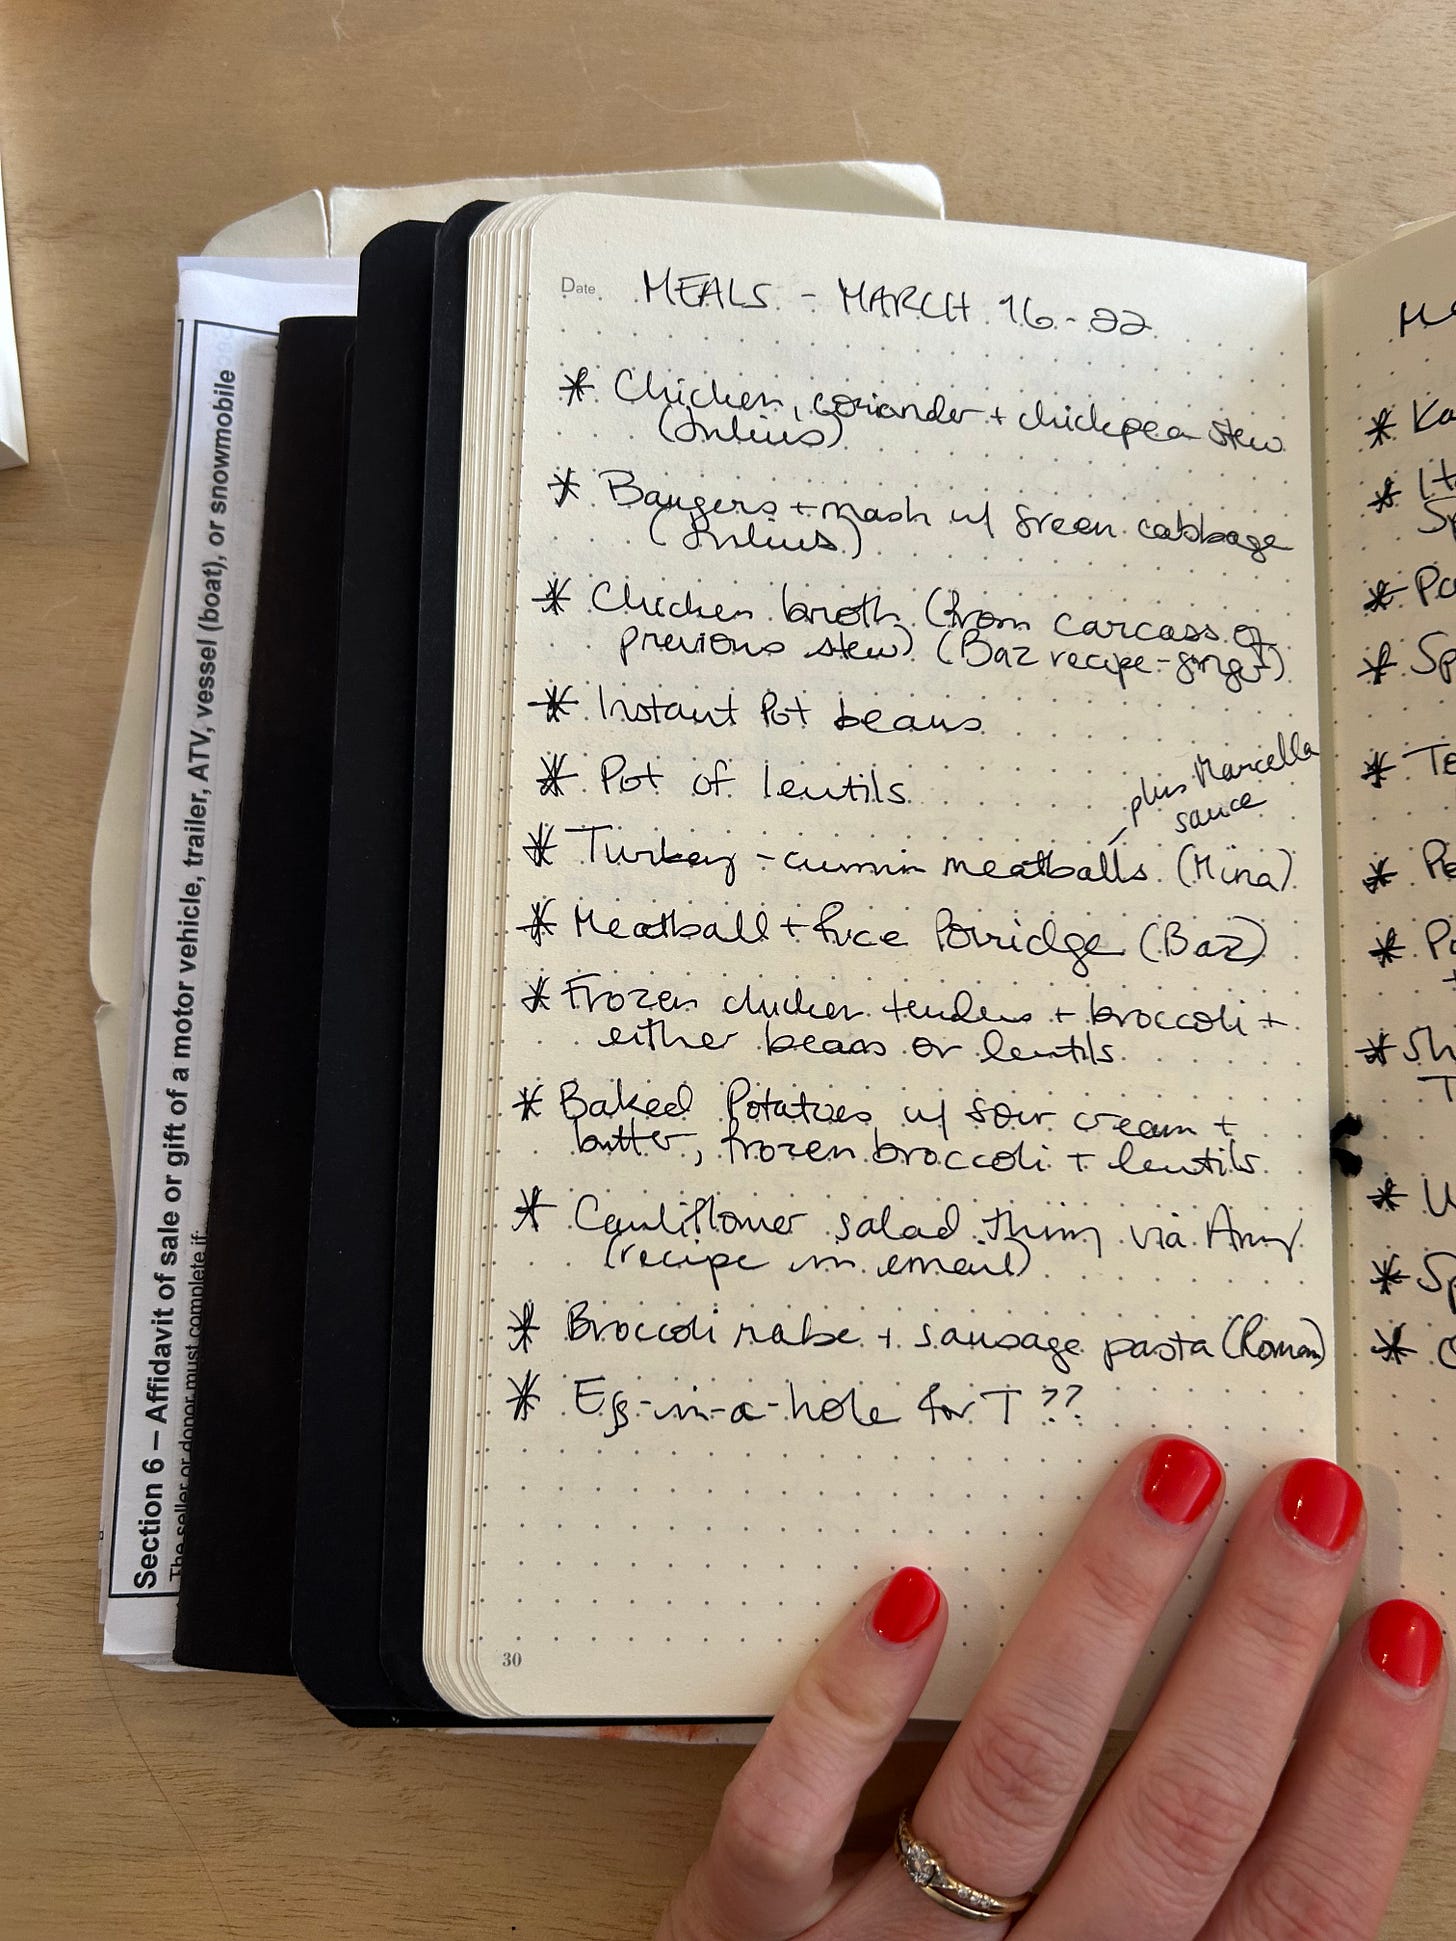 Section 6 – Affidavit of sale or gift of a motor vehicle, trailer, ATV, vessel (boat), or snowmobile
The seller or donor must complete if:
Date
MEALS - MARCH 16-22
* Chicken, coriander + chickpea stew
(Julius)
* Bangers + mash w/ green cabbage
(Julius)
* Chicken broth (from carcass of
previous stew) (Baz recipe-ginger)
* Instant Pot beans
* Pot of lentils
plus Marcella
sauce
* Turkey-cumin meatballs (Mina)
* Meatball + Rice Porridge (Baz)
* Frozen chicken tenders + broccoli +
either beans or lentils
* Baked Potatoes w/ sour cream +
butter, frozen broccoli + lentils
* Cauliflower salad thing via Amy
(recipe in email)
* Broccoli rabe + sausage pasta (Roman)
* Egg-in-a-hole for T ??
30
* Ka
* It
Sp
* Pa
* Sp
* Te
* Pe
* Pa
+
* Sh
T
* Sp